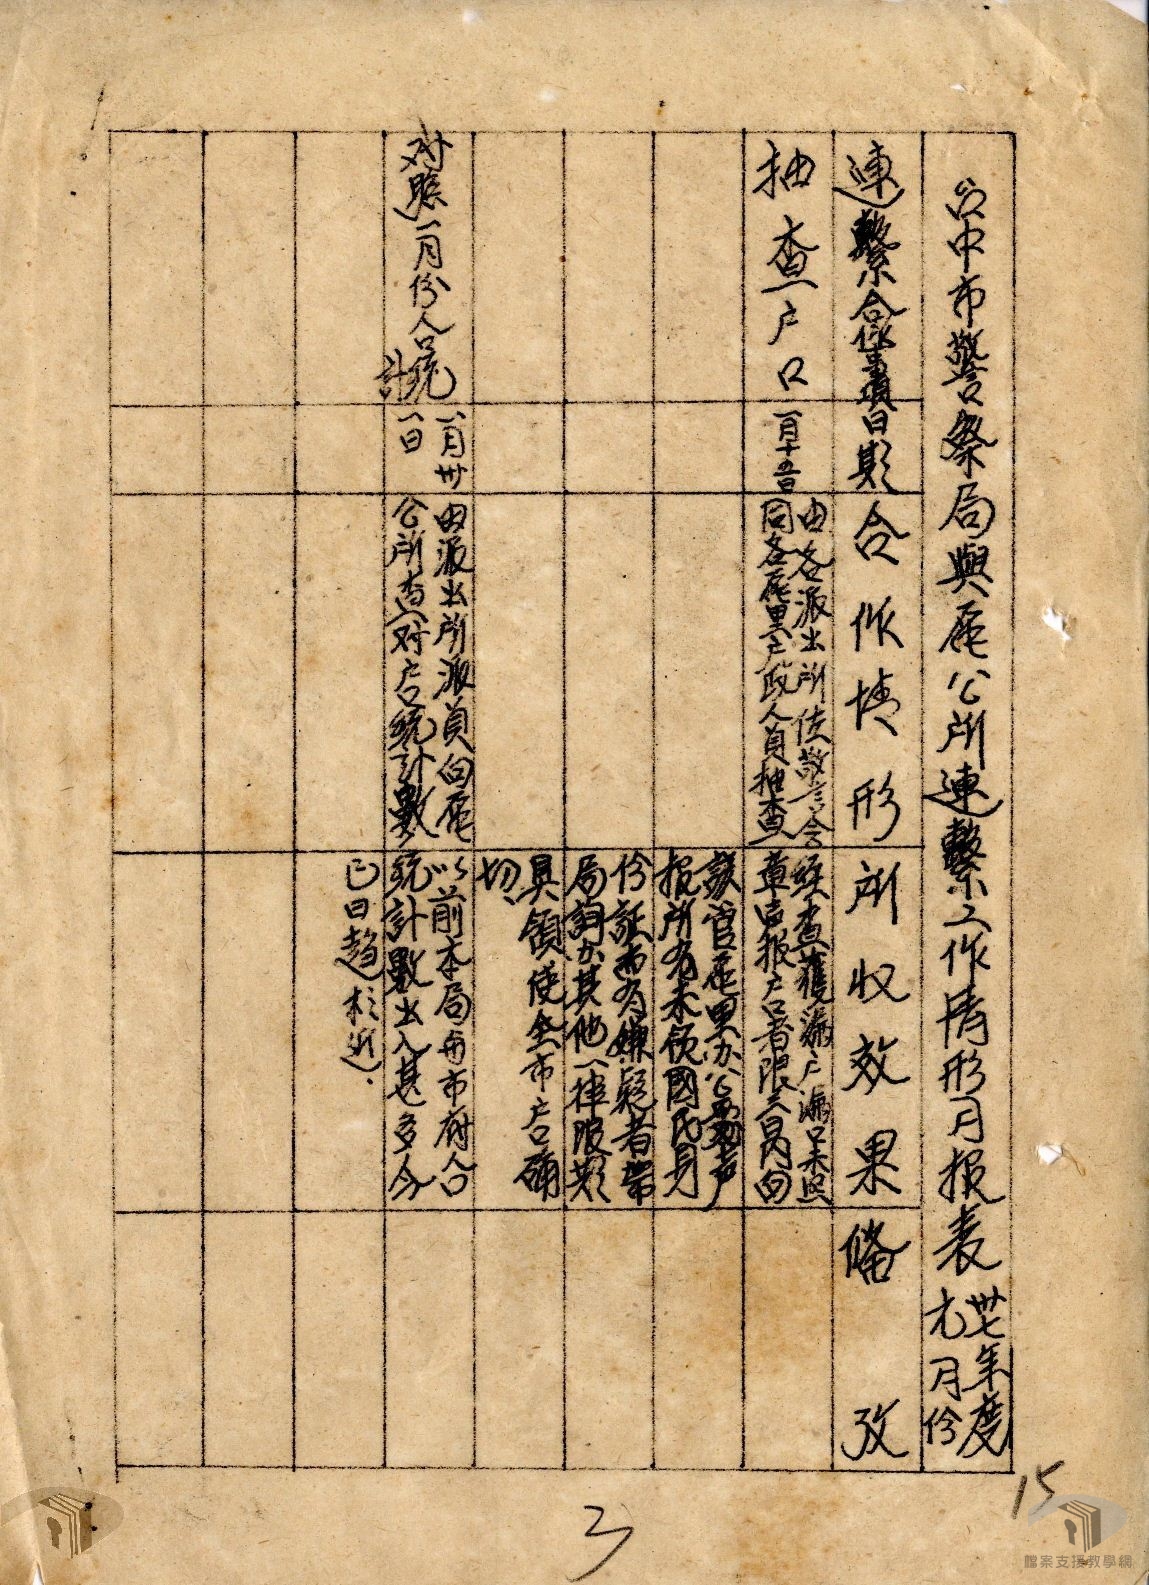 台中市警察局與區公所連繫工作情形月报表
卅七年度
元月份
連繫合作事項
日期
合作情形
所收效果
備攷
抽查户口
一月十五日
由各派出所使警会
同各區里户政人員抽查
經查獲漏户漏口未照
章申报户口者限三日内向
該管區里办公處声
报所有未领國民身
份証而有嫌疑者帶
局詢办其他一律限期
具領使全市户口確
切
对照一月份人口統
計
一月卅
一日
由派出所派員向區
公所查对户口統計數
以前本局与市府人口
統計數出入甚多今
已日趨於近.
15
3
檔案支援教學網